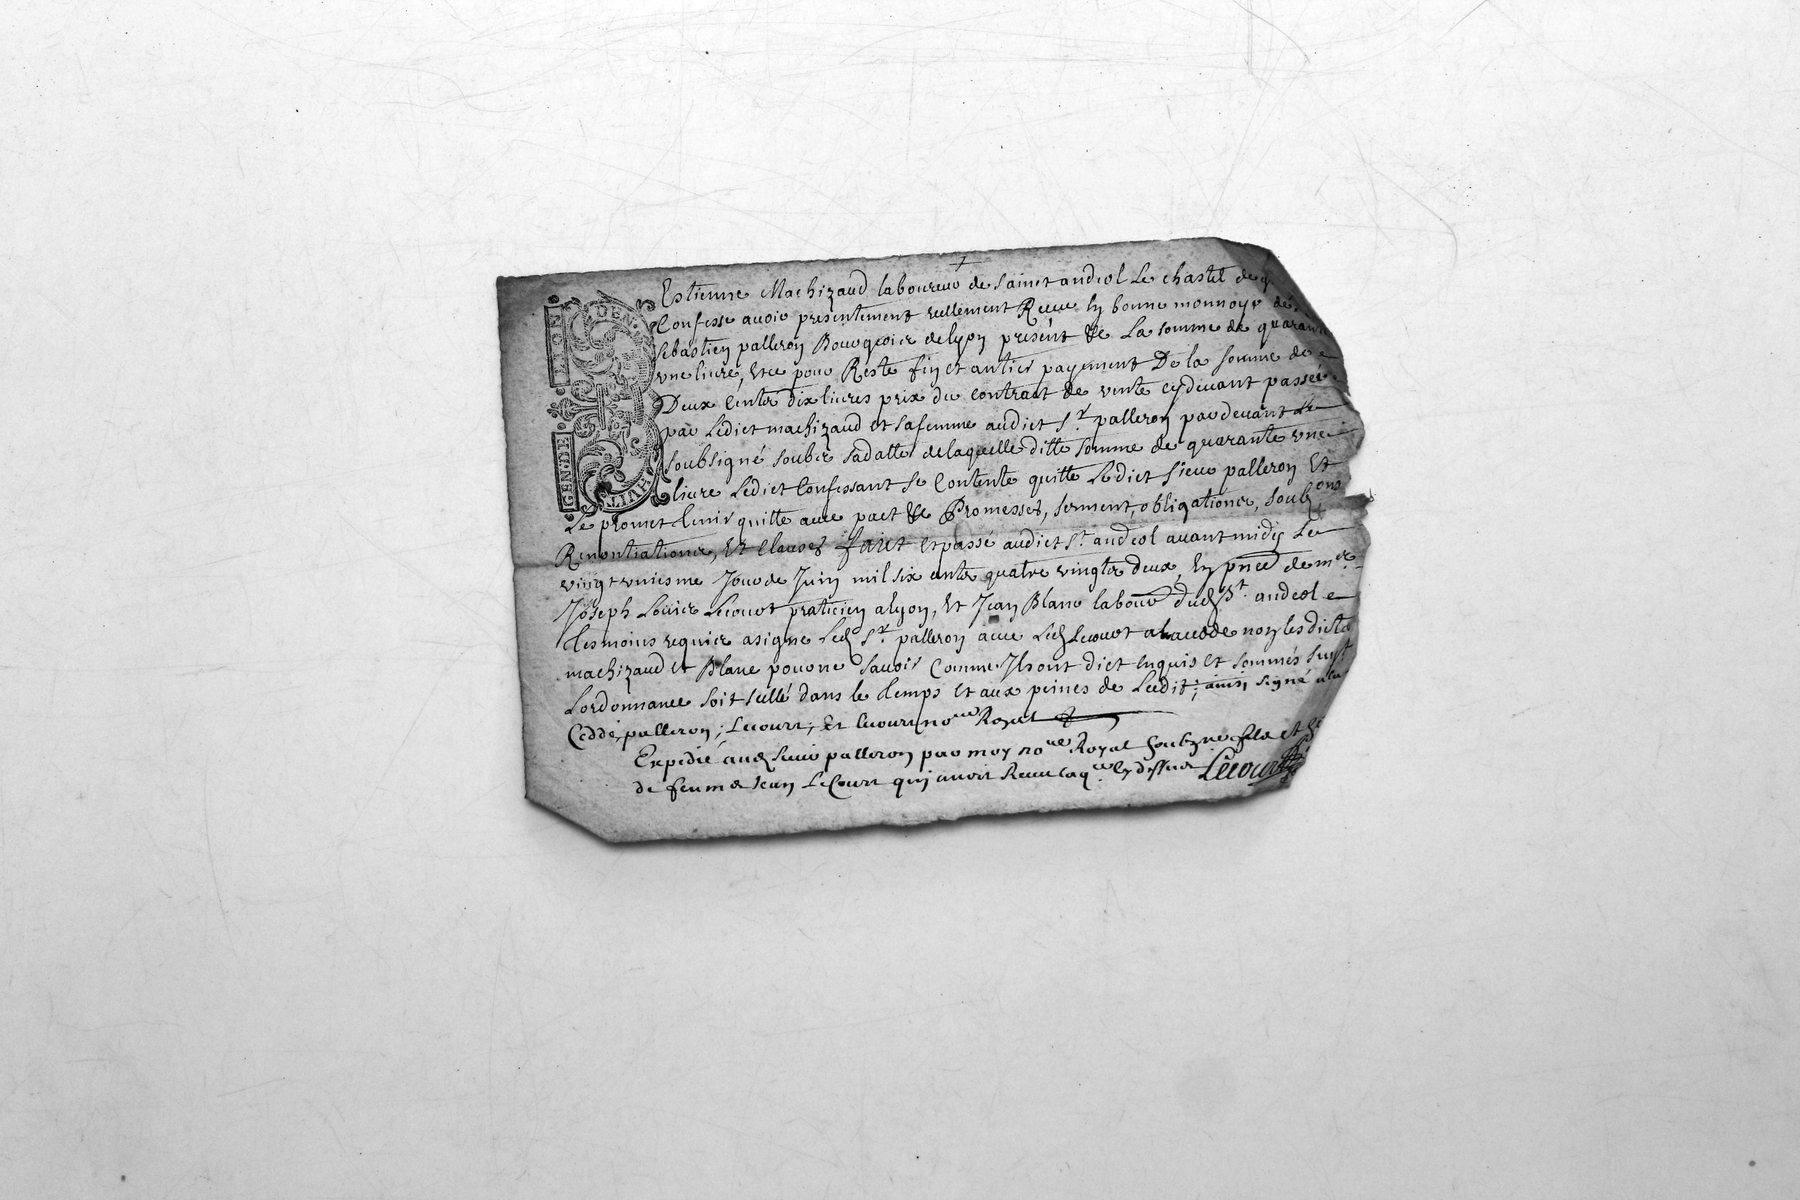 Estienne Machizaud laboureur de Sainct andeol Le chastel de
Confesse avoir presentement reellement Receu En bonne monnoye de
sebastien palleron Bourgeois de Lyon présent &c La somme de quarante
une livre, Et ce pour Reste fin et antier payement De la somme de
Deux Cents dix livres prix du contract de vente cydevant passée
par Ledict machizaud et sa femme audict Sr. palleron pardevant Le
soubsigné soubs sa datte de laquelle ditte somme de quarante une
livre Ledict Confessant se Contente quitte Ledict sieur palleron Et
Le promet tenir quitte avec pact &c Promesses, serment, obligations, soubzons
Renontiations, Et Clauses faict et passé audict St. andeol avant midy Le
vingt uniesme Jour de Juin mil six cents quatre vingts deux, En pnce de mer
Joseph Louis Lecourt praticien a lyon, Et Jean Blanc labour dud St. andeol
tesmoins requis a signé Led Sr. palleron avec Led Lecourt a la cedde non lesdicts
machizaud et Blanc pour ne savoir Comme Ils ont dict enquis et sommés suyt
Lordonnance soit scellé dans le temps et aux peines de Ledit; ainsi signé a la
Cedde, palleron; Lecourt; Et Lecourt nore Royal
Expédié aud sieur palleron par moy nore Royal soubzne fils et
de feu me Jean LeCourt qui avoit Receu
Lecourt
LION
GEN·DE
DEN·
HVIT